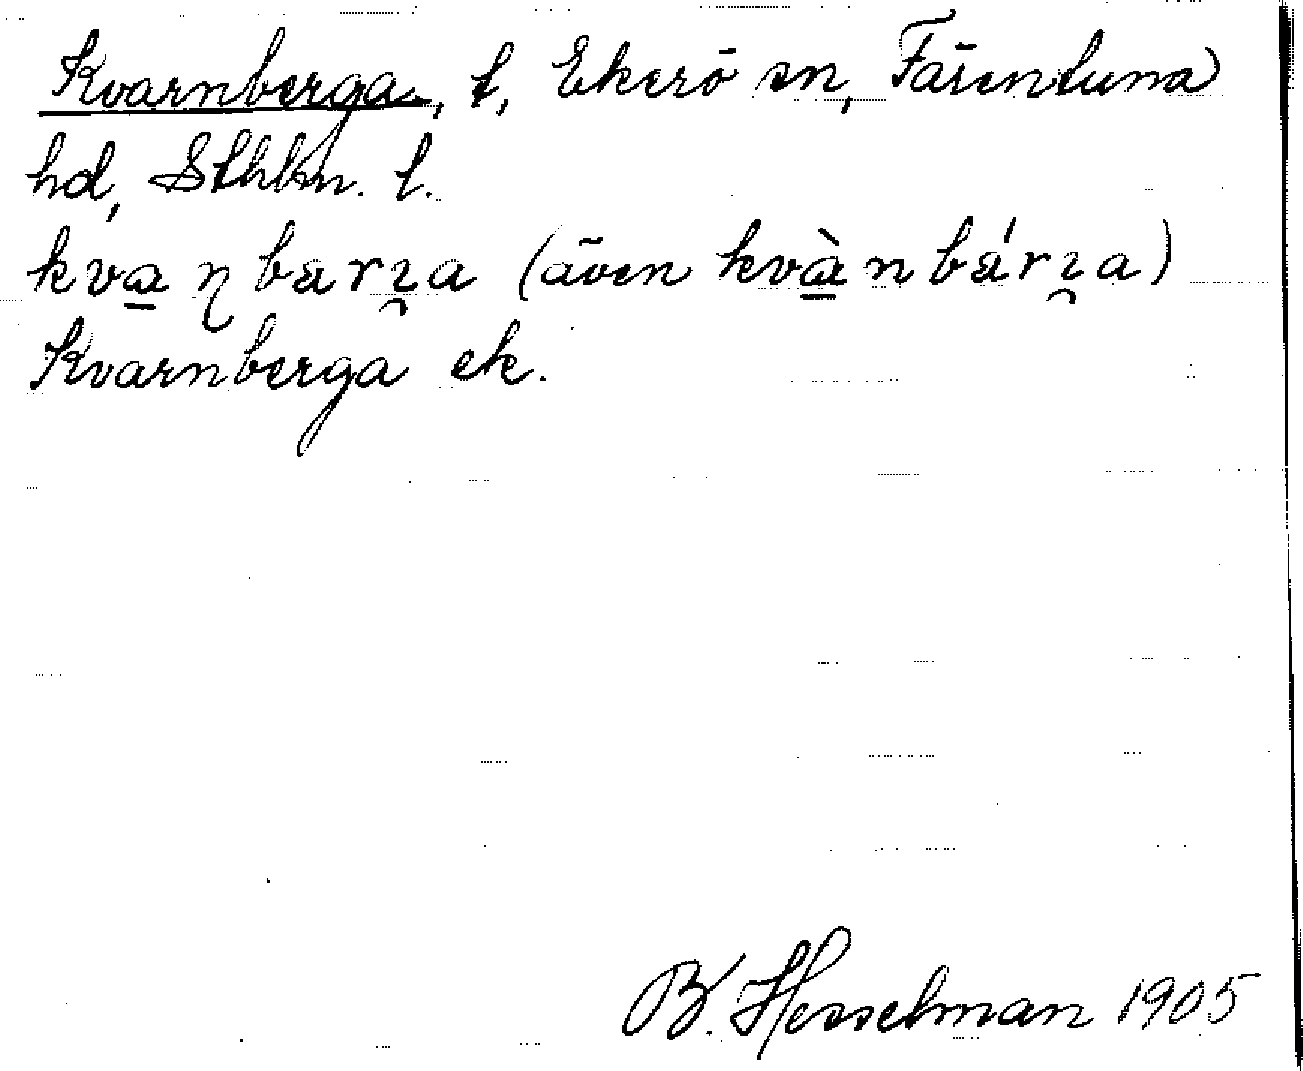 Kvarnberga, t, Ekerö sn, Färentuna
hd, Sthlm. l.
kva̲ɳbärɿ̯a (även kvà̲nbä́rɿ̯a)
Kvarnberga ek.
B. Hesselman 1905